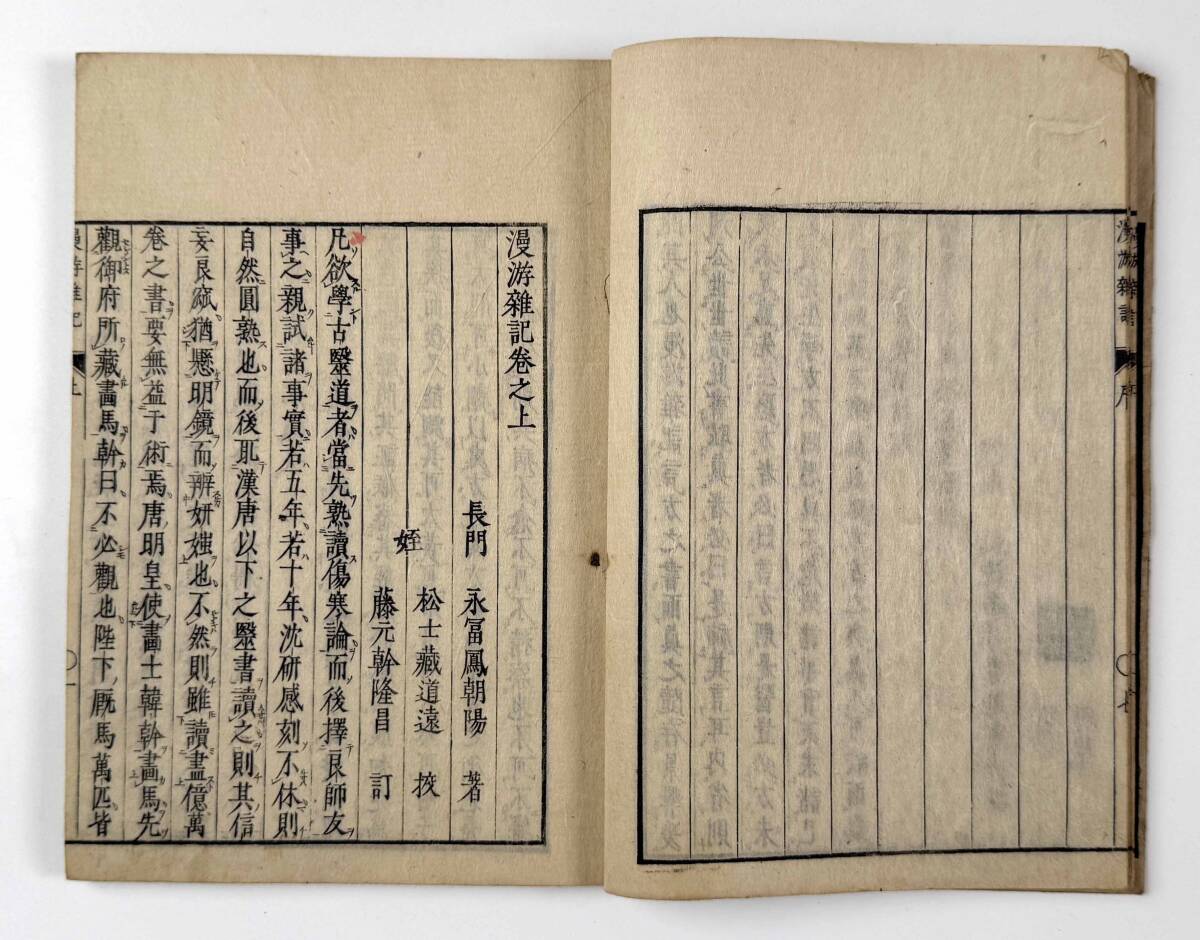 漫游雜記
序
漫游雜記卷之上
長門 永冨鳳朝陽 著
松士藏道遠 挍
姪
藤元幹隆昌 訂
凡欲學古毉道者當先熟讀傷寒論而後擇良師友
事之親試諸事實若五年若十年沈研感刻不休則
自然圓熟也而後取漢唐以下之毉書讀之則其信
妄良窳猶懸明鏡而辨妍媸也不然則雖讀盡億萬
卷之書要無益于術焉唐明皇使畫士韓幹畫馬先
觀御府所藏畫馬幹曰不必觀也陛下厩馬萬匹皆
漫游雜記
上